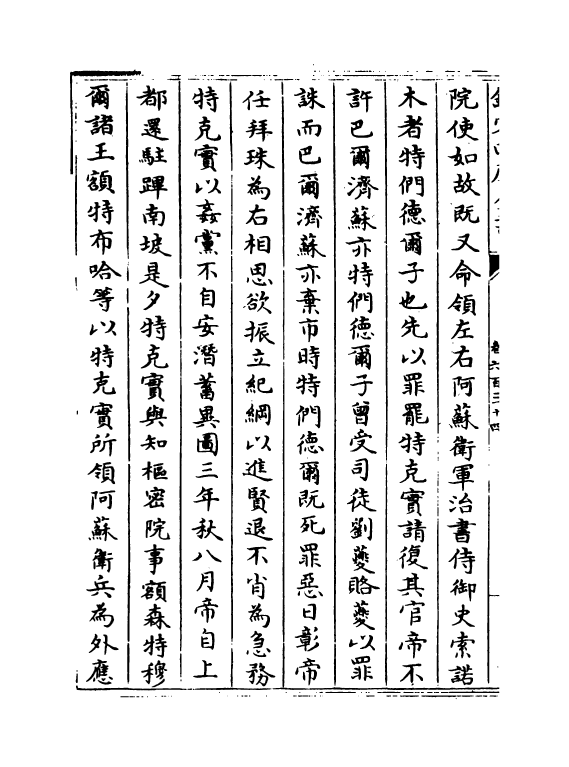 卷六百三十四
院使如故既又命領左右阿蘇衛軍治書侍御史索諾
木者特們德爾子也先以罪罷特克實請復其官帝不
許巴爾濟蘇亦特們德爾子曾受司徒劉夔賂夔以罪
誅而巴爾濟蘇亦棄市時特們德爾既死罪惡日彰帝
任拜珠為右相思欲振立紀綱以進賢退不肖為急務
特克實以姦黨不自安潛蓄異圖三年秋八月帝自上
都還駐蹕南坡是夕特克實與知樞密院事額森特穆
爾諸王額特布哈等以特克實所領阿蘇衛兵為外應